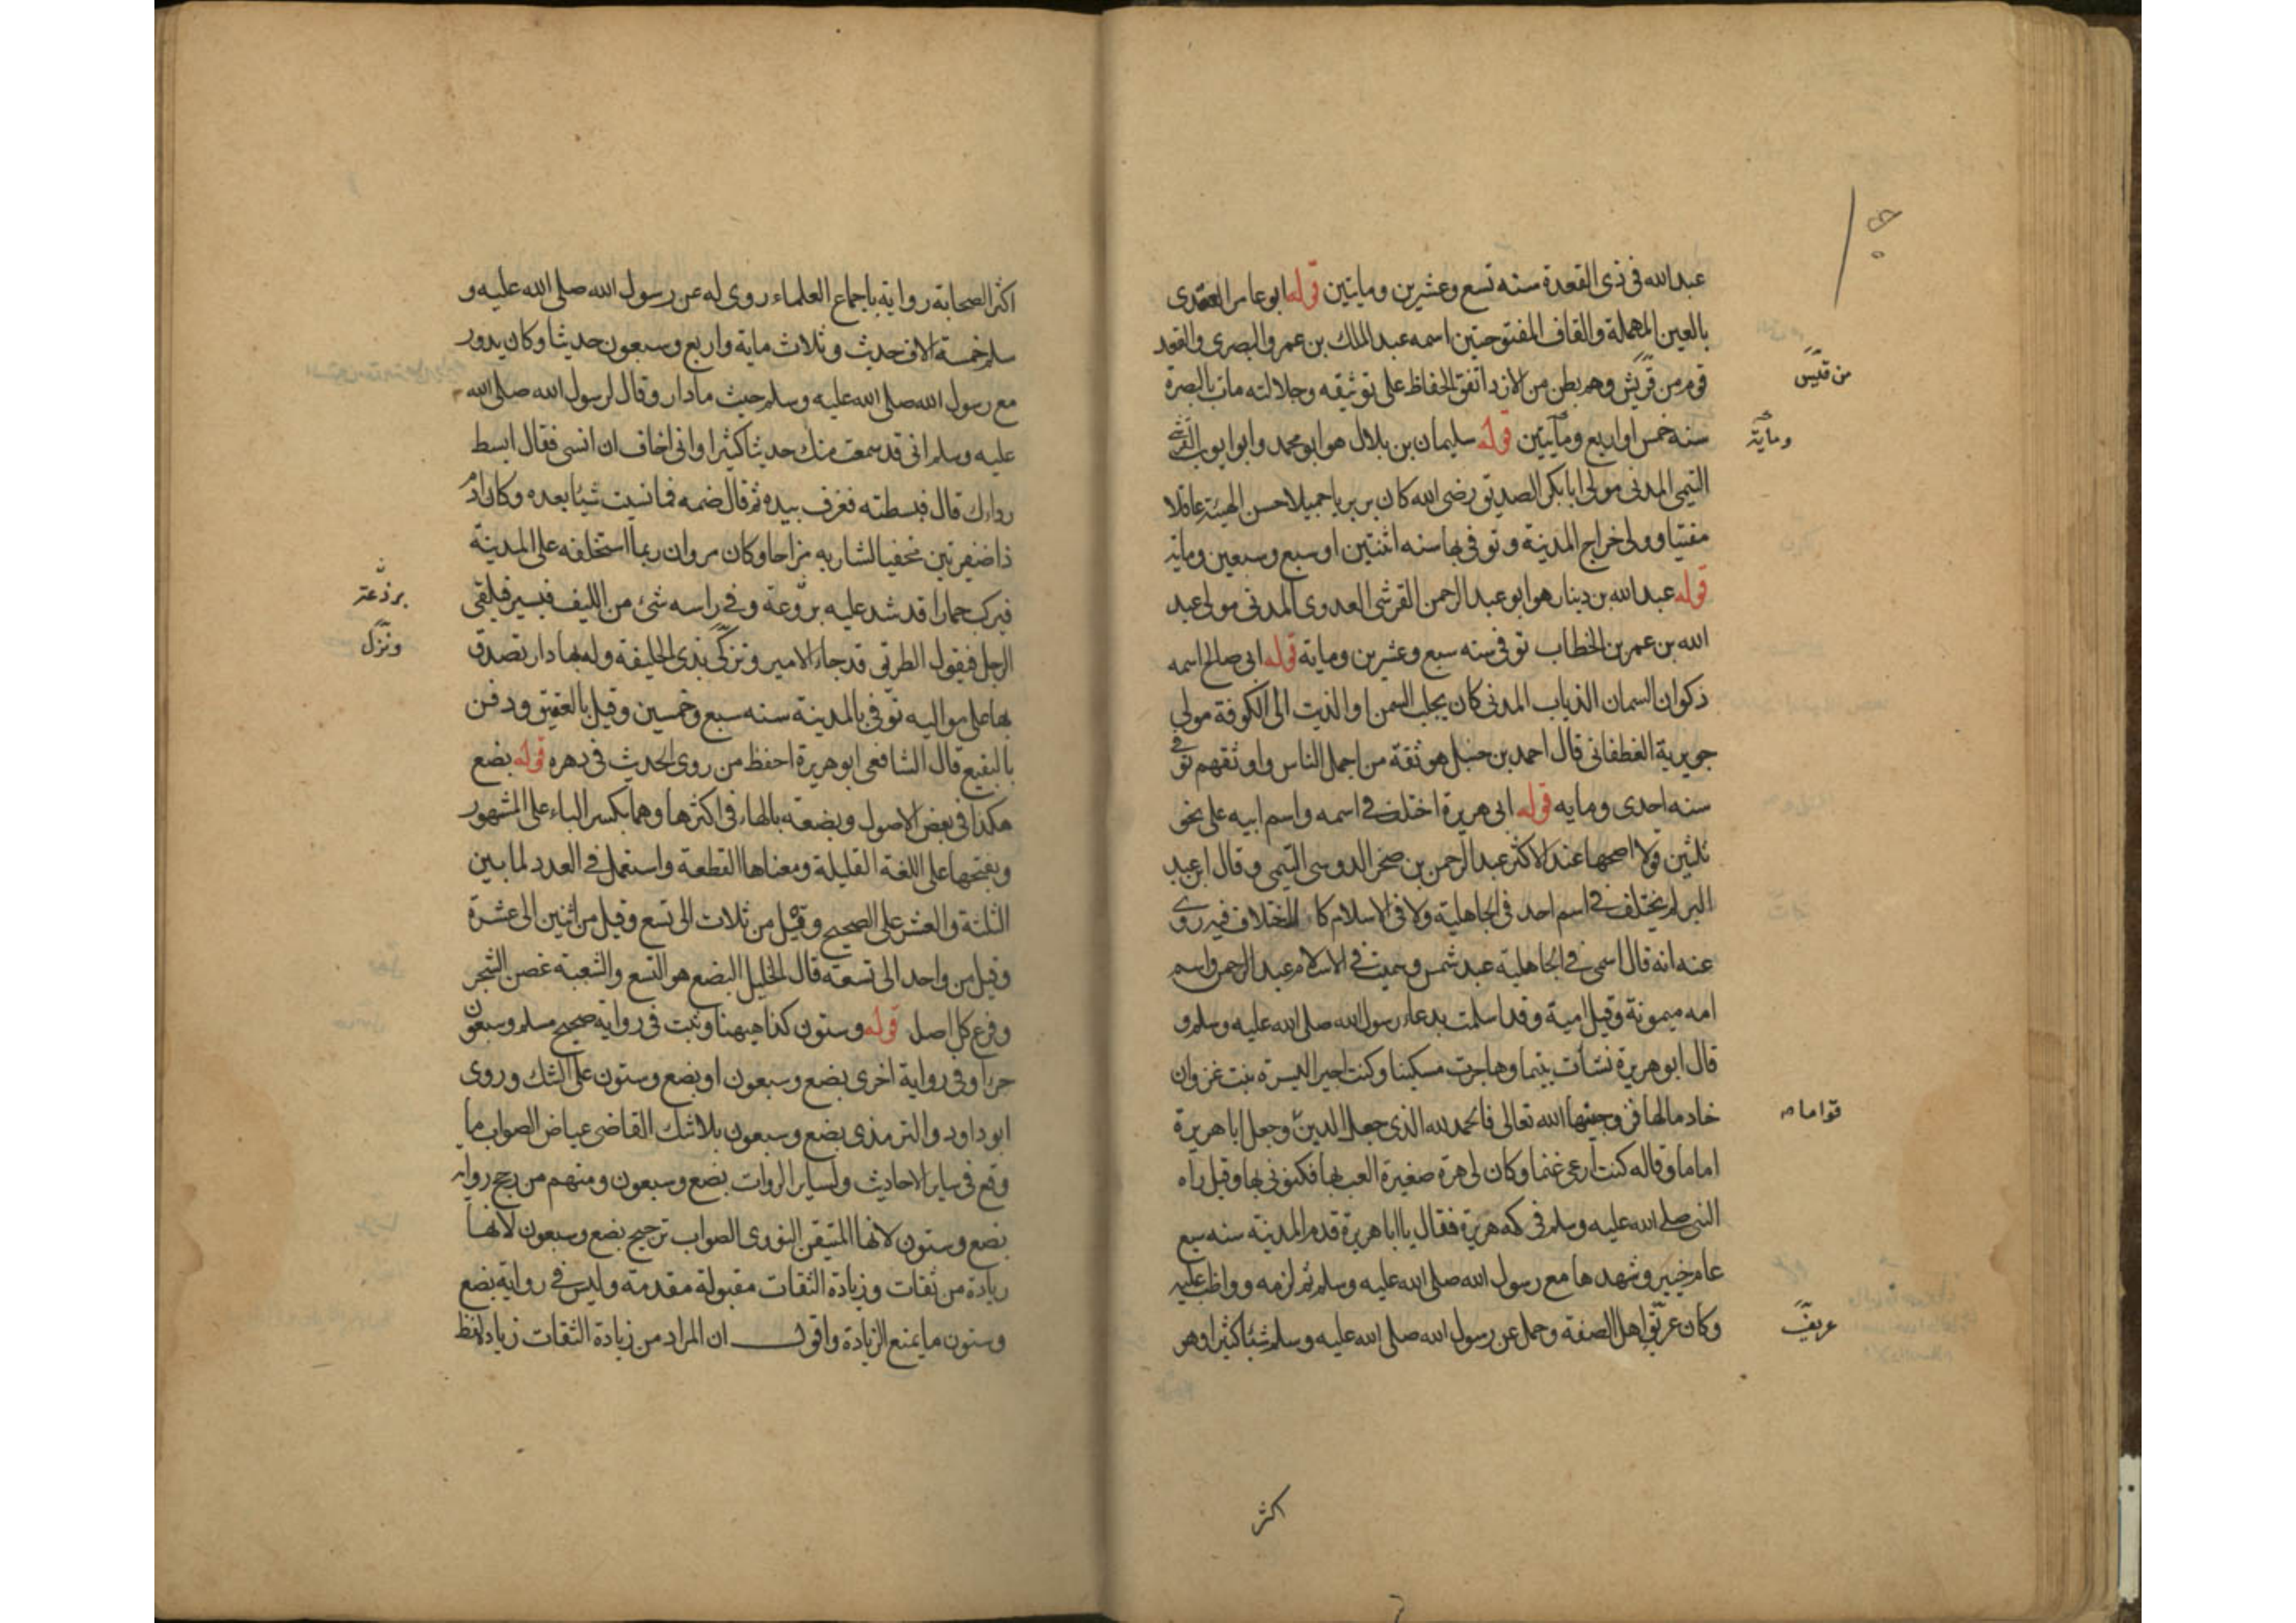 عبدالله في ذى القعدة سنه تسع وعشرين ومايتين قوله ابو عامر العقدى
بالعين المهملة والقاف المفتوحتين اسمه عبدالملك بن عمرو البصرى والعقد
قوم من قريش وهم بطن من الازد اتفق الحفاظ على توثيقه وجلالته مات بالبصرة
من قيس
سنه خمس او اربع ومأيتين قوله سليمان بن بلال هو ابو محمد وابو ايوب القرشى
ومأية
التيمى المدنى مولى ابابكر الصديق رضى الله كان بربريا جميلا حسن الهيئة عاقلا
مفتيا وولى خراج المدينة وتوفى بها سنه اثنتين او سبع وسبعين وماية
قوله عبدالله بن دينار هو ابو عبدالرحمن القرشى العدوى المدنى مولى عبد
الله بن عمر بن الخطاب توفى سنه سبع وعشرين وماية قوله ابى صالح اسمه
ذكوان السمان الذيات المدنى كان يجلب السمن او الذيت الى الكوفة مولى
جويرية الغطفانى قال احمد بن حنبل هو ثقة من اجمل الناس واوثقهم توفى
سنه احدى ومايه قوله ابى هريرة اختلف فى اسمه واسم ابيه على نحو
ثلثين قولا اصحها عند الاكثر عبدالرحمن بن صخر الدوسى التيمى وقال ابن عبد
البر لم يختلف فى اسم احد فى الجاهلية ولا فى الاسلام كالاختلاف فيه روى
عنه انه قال اسمى فى الجاهلية عبد شمس وسميت فى الاسلام عبدالرحمن واسم
امه ميمونة وقيل امية وقد اسلمت بدعاء رسول الله صلى الله عليه وسلم و
قال ابو هريرة نشأت يتيما وهاجرت مسكينا وكنت اجيرا لبسرة بنت غزوان
خادما لها فزوجنيها الله تعالى فالحمدلله الذى جعل الدين وجعل ابا هريرة
قواما
اماما وقاله كنت ارعى غنما وكان لى هرة صغيرة العب بها فكنونى بها وقيل رآه
النبى صلى الله عليه وسلم فى كمه هريرة فقال يا ابا هريرة قدم المدينة سنه سبع
عام خيبر وشهدها مع رسول الله صلى الله عليه وسلم ثم لزمه وواظب عليه
وكان عريق اهل الصفة وحمل عن رسول الله صلى الله عليه وسلم شيئا كثيرا وهو
عريف
اكثر
اكثر الصحابة رواية باجماع العلماء روى له عن رسول الله صلى الله عليه و
سلم خمسة الاف حديث وثلاث ماية واربع وسبعون حديثا وكان يدور
مع رسول الله صلى الله عليه وسلم حيث مادار وقال لرسول الله صلى الله
عليه وسلم انى قد سمعت منك حديثا كثيرا وانى اخاف ان انسى فقال ابسط
رداءك قال فبسطته فغرف بيده ثم قال ضمه فما نسيت شيئا بعده وكان ادم
ذا ضفيرتين محفيا لشاربه مزاحا وكان مروان ربما استخلفه على المدينة
فيركب حمارا قد شد عليه بردعة وفى راسه شئ من الليف فيسير فيلقى
برذعته
الرجل فيقول الطريق قد جاء الامير وتزكى بذى الحليفة وله بها دار تصدق
ونزل
بها على مواليه توفى بالمدينة سنه سبع وخمسين وقيل بالعقيق ودفن
بالبقيع قال الشافعى ابو هريرة احفظ من روى الحديث فى دهره قوله بضع
هكذا فى بعض الاصول وبضعة بالهاء فى اكثرها وهما بكسر الباء على المشهور
وبفتحها على اللغة القليلة ومعناها القطعة واستعمل فى العدد لما بين
الثلثة والعشر على الصحيح وقيل من ثلاث الى تسع وقيل من اثنين الى عشرة
وقيل من واحد الى تسعة قال الخليل البضع هو التسع والشعبة غصن الشجر
وفرع كل اصل قوله وستون كذا هيهنا وثبت فى رواية صحيح مسلم وسبعون
جزأ وفى رواية اخرى بضع وسبعون او بضع وستون على الشك وروى
ابو داود والترمذى بضع وسبعون بلاشك القاضى عياض الصواب ما
وقع فى ساير الاحاديث ولساير الروات بضع وسبعون ومنهم من رجح رواية
بضع وستون لانها المتيقن النووى الصواب ترجيح بضع وسبعون لانها
زيادة من ثقات وزيادة الثقات مقبولة مقدمة وليس فى رواية بضع
وستون ما يمنع الزيادة واقول ان المراد من زيادة الثقات زيادة لفظ